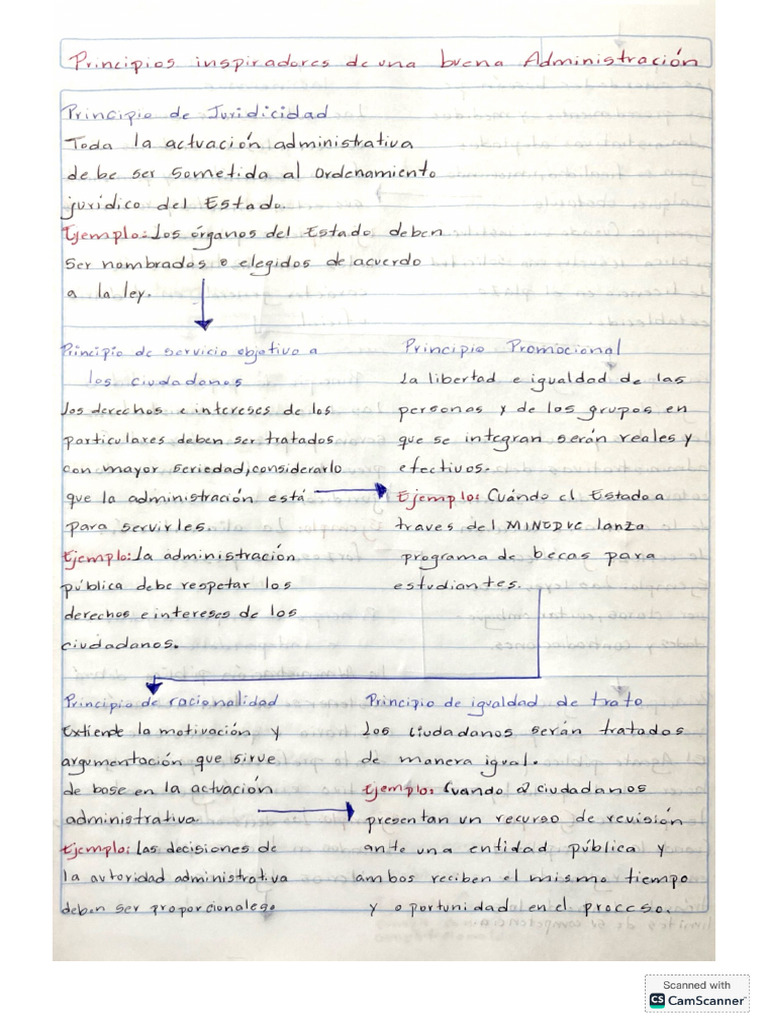 Principios inspiradores de una buena Administración
Principio de Juridicidad
Toda la actuación administrativa
debe ser sometida al ordenamiento
jurídico del Estado.
Ejemplo: Los órganos del Estado deben
ser nombrados o elegidos de acuerdo
a la ley.
Principio de servicio objetivo a
los ciudadanos
Los derechos e intereses de los
particulares deben ser tratados
con mayor seriedad, considerarlo
que la administración está
para servirles.
Ejemplo: La administración
pública debe respetar los
derechos e intereses de los
ciudadanos.
Principio Promocional
La libertad e igualdad de las
personas y de los grupos en
que se integran serán reales y
efectivos.
Ejemplo: Cuándo el Estado a
traves del MINEDUC lanza
programa de becas para
estudiantes.
Principio de racionalidad
Extiende la motivación y
argumentación que sirve
de base en la actuación
administrativa.
Ejemplo: Las decisiones de
la autoridad administrativa
deben ser proporcionales.
Principio de igualdad de trato
Los ciudadanos serán tratados
de manera igual.
Ejemplo: Cuando 2 ciudadanos
presentan un recurso de revisión
ante una entidad pública y
ambos reciben el mismo tiempo
y oportunidad en el proceso.
Scanned with
CS CamScanner